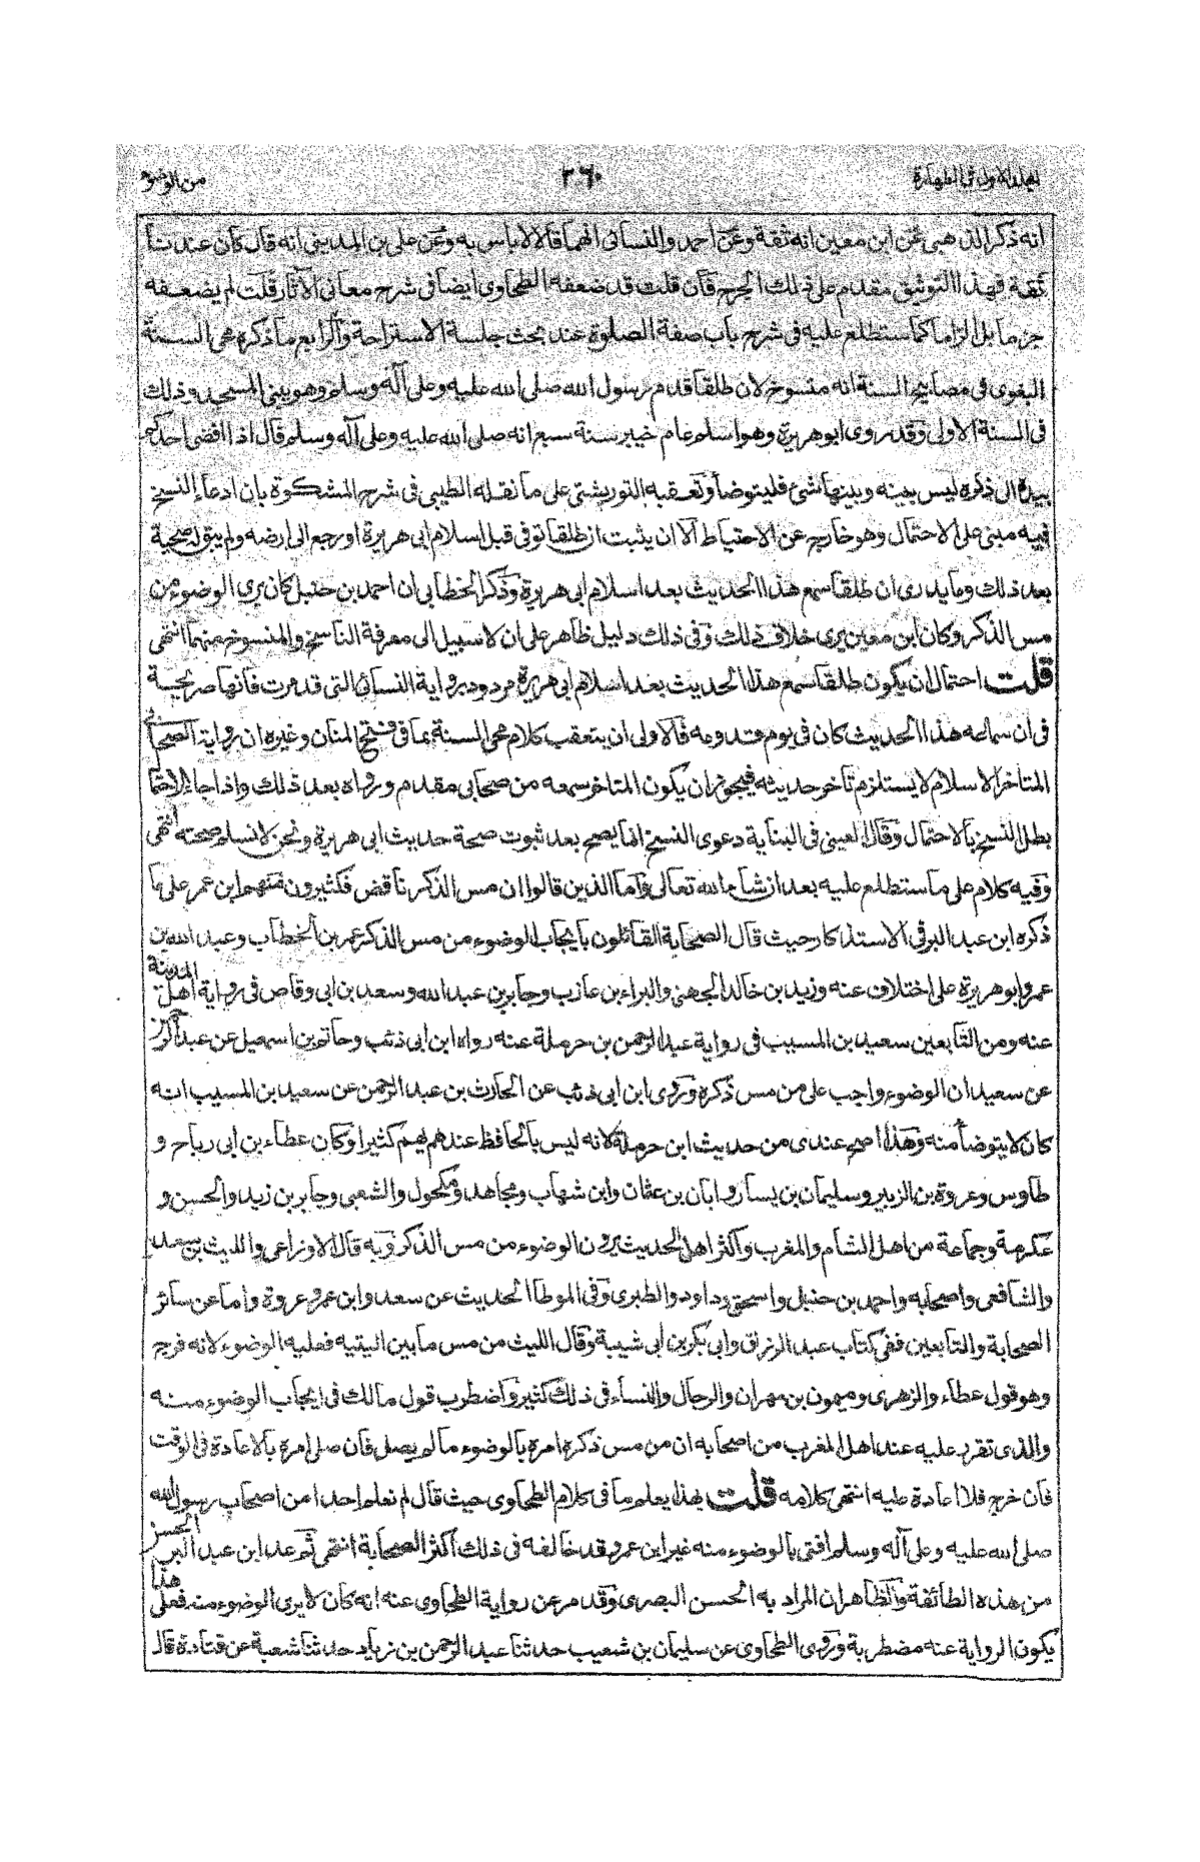 المجلد الاول فى الطهارة ٢٦٠ من الوضوء
انه ذكر الذهبى عن ابن معين انه ثقة وعن احمد والنسائى انهما قالا لا باس به وعن على بن المدينى انه قال كان عندنا
ثقة فهذا التوثيق مقدم على ذلك الجرح فان قلت قد ضعفه الطحاوى ايضا فى شرح معانى الآثار قلت لم يضعفه
جزما بل الزاما كما ستطلع عليه فى شرح باب صفة الصلوة عند بحث جلسة الاستراحة والرابع ما ذكره محى السنة
البغوى فى مصابيح السنة انه منسوخ لان طلقا قدم رسول الله صلى الله عليه وعلى آله وسلم وهو يبنى المسجد وذلك
فى السنة الاولى وقد روى ابو هريرة وهو اسلم عام خيبر سنة سبع انه صلى الله عليه وعلى آله وسلم قال اذا افضى احدكم
بيده الى ذكره ليس بينه وبينها شئ فليتوضأ وتعقبه التوربشتى على ما نقله الطيبى فى شرح المشكوة بان ادعاء النسخ
فيه مبنى على الاحتمال وهو خارج عن الاحتياط الا ان يثبت ان طلقا توفى قبل اسلام ابى هريرة او رجع الى ارضه ولم يبق له صحبة
بعد ذلك وما يدرى ان طلقا سمع هذا الحديث بعد اسلام ابى هريرة وذكر الخطابى ان احمد بن حنبل كان يرى الوضوء من
مس الذكر وكان ابن معين يرى خلاف ذلك وفى ذلك دليل ظاهر على ان لا سبيل الى معرفة الناسخ والمنسوخ منهما انتهى
قلت احتمال ان يكون طلقا سمع هذا الحديث بعد اسلام ابى هريرة مردود برواية النسائى التى قد مرت فانها صريحة
فى ان سماعه هذا الحديث كان فى يوم قدومه فالاولى ان يتعقب كلام محى السنة بما فى فتح المنان وغيره ان رواية الصحابى
المتاخر الاسلام لا يستلزم تاخر حديثه فيجوز ان يكون المتاخر سمعه من صحابى مقدم ورواه بعد ذلك واذا جاء الاحتما
بطل النسخ بالاحتمال وقال العينى فى البناية دعوى النسخ انما يصح بعد ثبوت صحة حديث ابى هريرة ونحن لا نسلم صحته انتهى
وفيه كلام على ما ستطلع عليه بعد ان شاء الله تعالى واما الذين قالوا ان مس الذكر ناقض فكثيرون منهم ابن عمر على ما
ذكره ابن عبد البر فى الاستذكار حيث قال الصحابة القائلون بايجاب الوضوء من مس الذكر عمر بن الخطاب وعبد الله بن
عمر وابو هريرة على اختلاف عنه وزيد بن خالد الجهنى والبراء بن عازب وجابر بن عبد الله وسعد بن ابى وقاص فى رواية اهل المدينة
عنه ومن التابعين سعيد بن المسيب فى رواية عبد الرحمن بن حرملة عنه رواه ابن ابى ذئب وحاتم بن اسمعيل عن عبد الرحمن
عن سعيد ان الوضوء واجب على من مس ذكره وروى ابن ابى ذئب عن الحارث بن عبد الرحمن عن سعيد بن المسيب انه
كان لا يتوضأ منه وهذا اصح عندى من حديث ابن حرملة لانه ليس بالحافظ عندهم يهم كثيرا وكان عطاء بن ابى رباح و
طاوس وعروة بن الزبير وسليمان بن يسار وابان بن عثمان وابن شهاب ومجاهد ومكحول والشعبى وجابر بن زيد والحسن و
عكرمة وجماعة من اهل الشام والمغرب واكثر اهل الحديث يرون الوضوء من مس الذكر وبه قال الاوزاعى والليث بن سعد
والشافعى واصحابه واحمد بن حنبل واسحق وداود والطبرى وفى الموطأ الحديث عن سعد وابن عمر وعروة واما عن سائر
الصحابة والتابعين ففى كتاب عبد الرزاق وابى بكر بن ابى شيبة وقال الليث من مس ما بين اليتيه فعليه الوضوء لانه فرج
وهو قول عطاء والزهرى وميمون بن مهران والرجال والنساء فى ذلك كثير واضطرب قول مالك فى ايجاب الوضوء منه
والذى تقرر عليه عند اهل المغرب من اصحابه ان من مس ذكره امره بالوضوء ما لم يصل فان صلى امره بالاعادة فى الوقت
فان خرج فلا اعادة عليه انتهى كلامه قلت بهذا يعلم ما فى كلام الطحاوى حيث قال لم نعلم احدا من اصحاب رسول الله
صلى الله عليه وعلى آله وسلم افتى بالوضوء منه غير ابن عمر وقد خالفه فى ذلك اكثر الصحابة انتهى ثم عد ابن عبد البر الحسن
من هذه الطائفة والظاهر ان المراد به الحسن البصرى وقد مر عن رواية الطحاوى عنه انه كان لا يرى الوضوء منه فعلى هذا
يكون الرواية عنه مضطربة وروى الطحاوى عن سليمان بن شعيب حدثنا عبد الرحمن بن زياد حدثنا شعبة عن قتادة قال